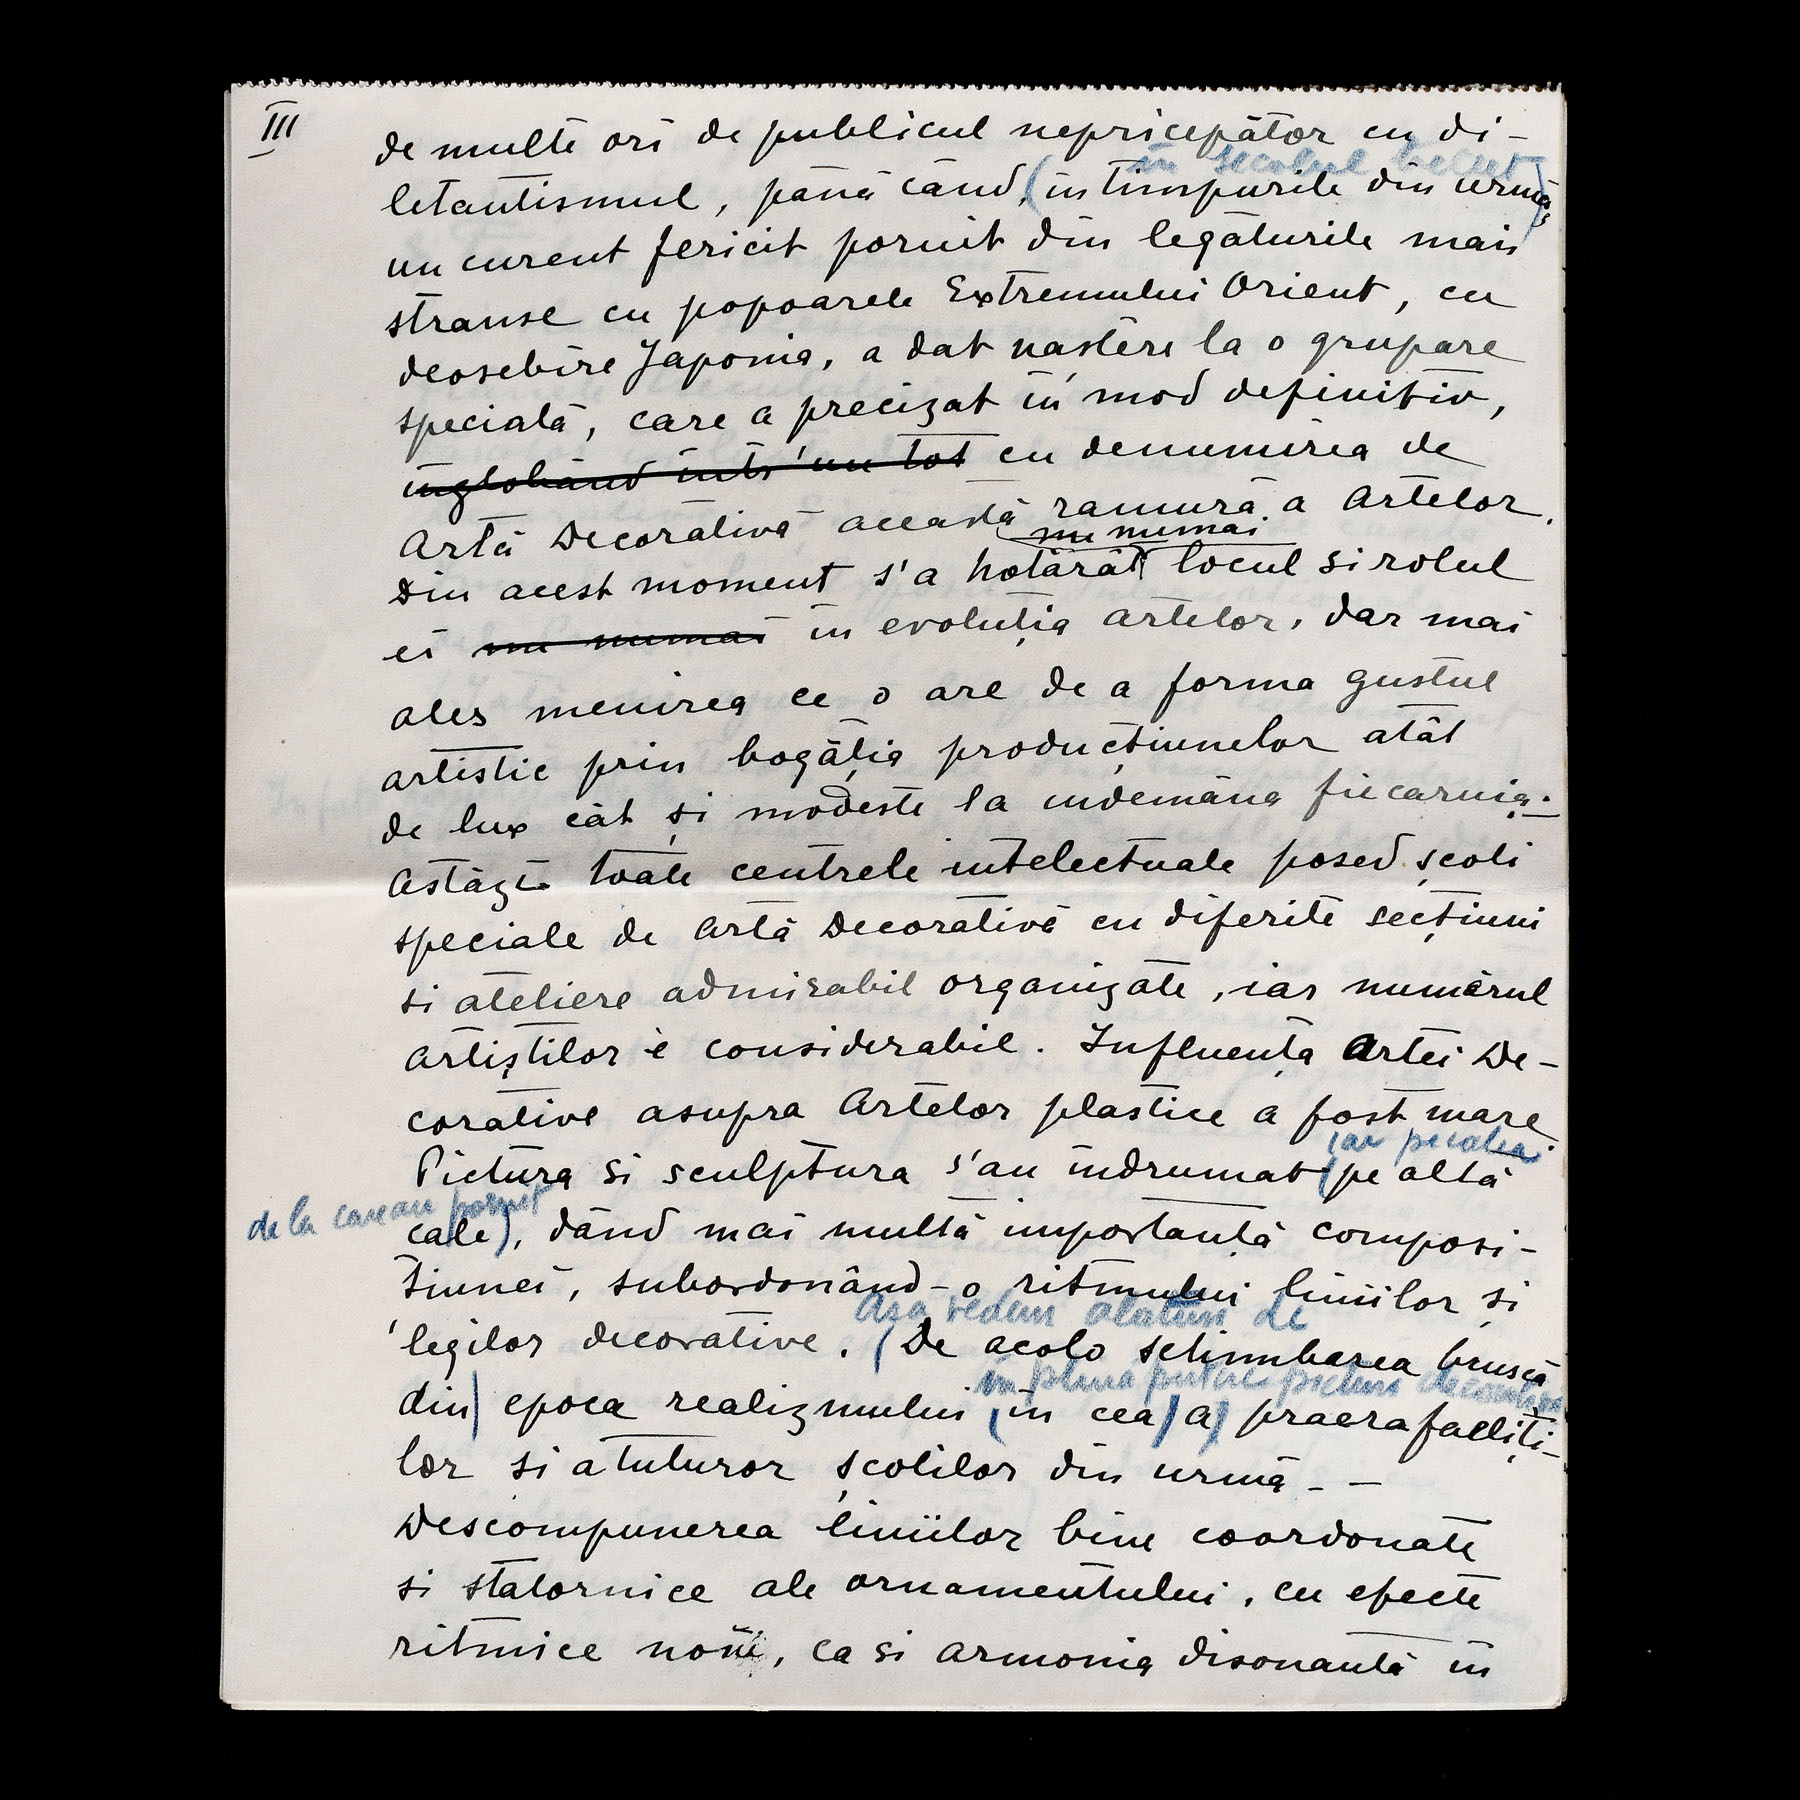 III
de multe ori de publicul nepricepător cu di-
în secolul
letantismul, până când, (în timpurile din urmă),
un curent fericit pornit din legăturile mai
stranse cu popoarele Extremului Orient, cu
deosebire Japonia, a dat nastere la o grupare
specială, care a precizat în mod definitiv,
înglobând într'un tot cu denumirea de
Artă Decorativă această ramură a Artelor.
nu numai
Din acest moment s'a hotărât locul si rolul
ei nu numai in evoluția artelor, dar mai
ales menirea ce o are de a forma gustul
artistic prin bogăția producțiunelor atât
de lux cât și modeste la indemâna fiecaruia.-
Astăzi toate centrele intelectuale posed școli
speciale de Artă Decorativă cu diferite secțiuni
si ateliere admirabil organizate, iar numărul
artiștilor e considerabil. Influența Artei De-
corative asupra Artelor plastice a fost mare.
iar pe calea
Pictura si sculptura s'au indrumat (pe altă
de la care au pornit
cale), dând mai multă importanță composi-
tiunei, subordonând-o ritmului liniilor și
Asa vedem alaturi de
legilor decorative. (De acolo schimbarea bruscă
in plina putere picturi
din) epoca realizmului (în cea) a) praerafaeliți-
lor si a tuturor școlilor din urmă - -
Descompunerea liniilor bine coordonate
si statornice ale ornamentului, cu efecte
ritmice noui, ca si armonia disonantă in